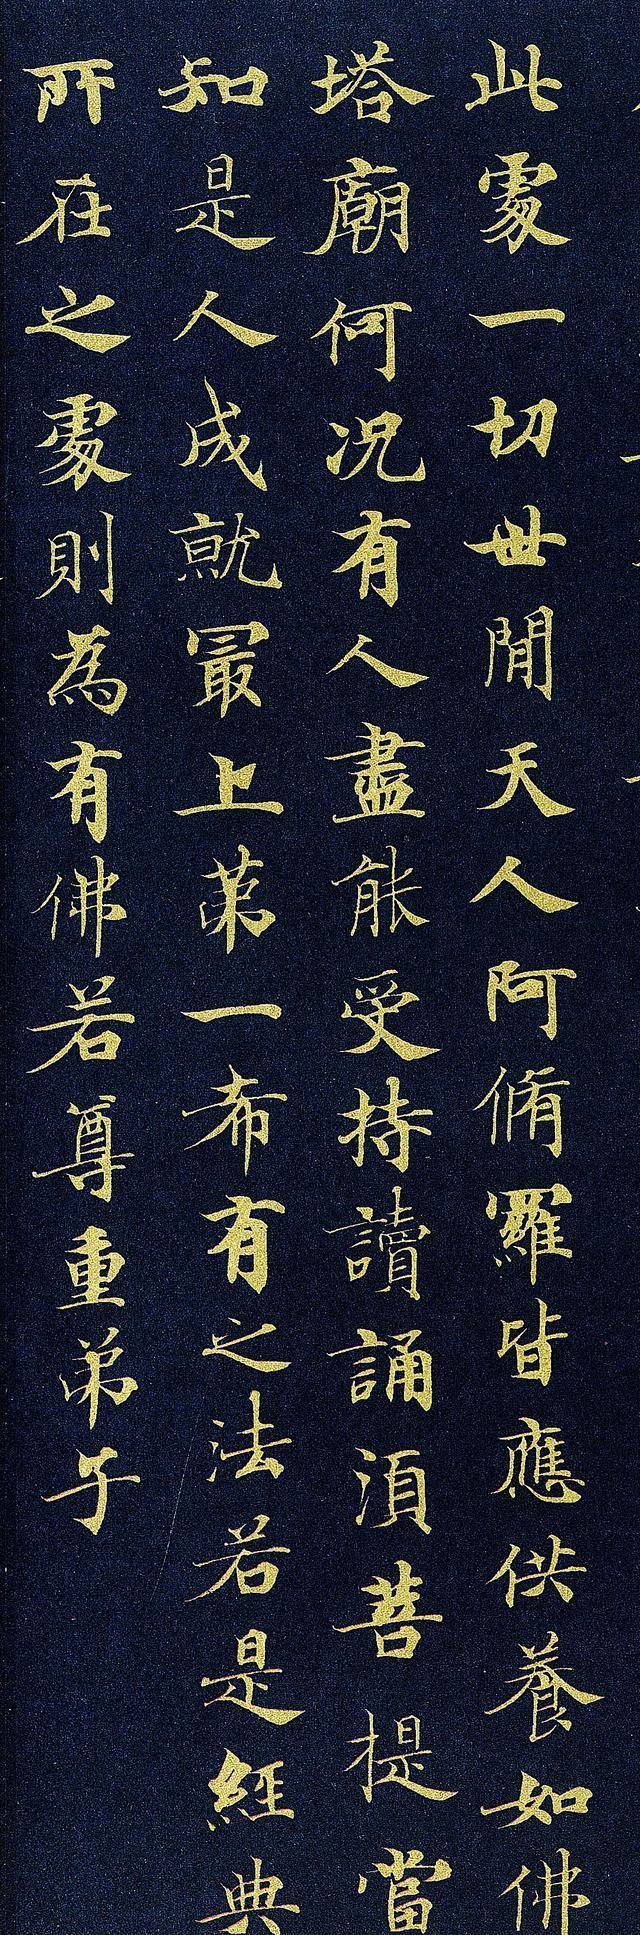 此處一切世間天人阿脩羅皆應供養如佛
塔廟何況有人盡能受持讀誦須菩提當
知是人成就最上第一希有之法若是經典
所在之處則為有佛若尊重弟子